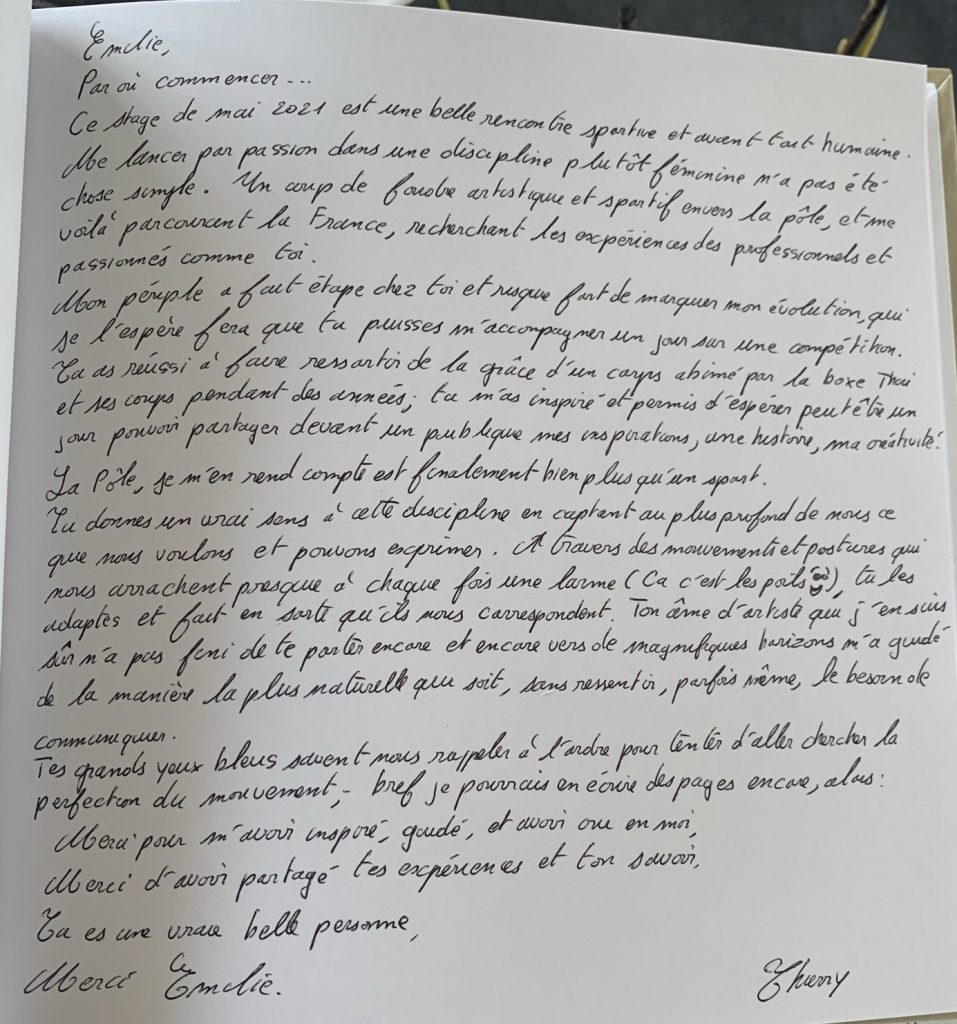 Emilie,
Par où commencer...
Ce stage de mai 2021 est une belle rencontre sportive et avant tout humaine.
Me lancer par passion dans une discipline plutôt féminine n'a pas été
chose simple. Un coup de foudre artistique et sportif envers la pôle, et me
voilà parcourant la France, recherchant les expériences des professionnels et
passionnés comme toi.
Mon périple a fait étape chez toi et risque fort de marquer mon évolution, qui
je l'espère fera que tu puisses m'accompagner un jour sur une compétition.
Tu as réussi à faire ressortir de la grâce d'un corps abimé par la boxe Thai
et ses coups pendant des années; tu m'as inspiré et permis d'espérer peut être un
jour pouvoir partager devant un publique mes inspirations, une histoire, ma créativité.
La Pôle, je m'en rend compte est finalement bien plus qu'un sport.
Tu donnes un vrai sens à cette discipline en captant au plus profond de nous ce
que nous voulons et pouvons exprimer. A travers des mouvements et postures qui
nous arrachent presque à chaque fois une larme (Ca c'est les poils 😄), tu les
adaptes et fait en sorte qu'ils nous correspondent. Ton âme d'artiste qui j'en suis
sûr n'a pas fini de te porter encore et encore vers de magnifiques horizons m'a guidé
de la manière la plus naturelle que soit, sans ressentir, parfois même, le besoin de
communiquer.
Tes grands yeux bleus savent nous rappeler à l'ordre pour tenter d'aller chercher la
perfection du mouvement,- bref je pourrais en écrire des pages encore, alors:
Merci pour m'avoir inspiré, guidé, et avoir cru en moi,
Merci d'avoir partagé tes expériences et ton savoir,
Tu es une vraie belle personne,
Merci Emilie. Thierry